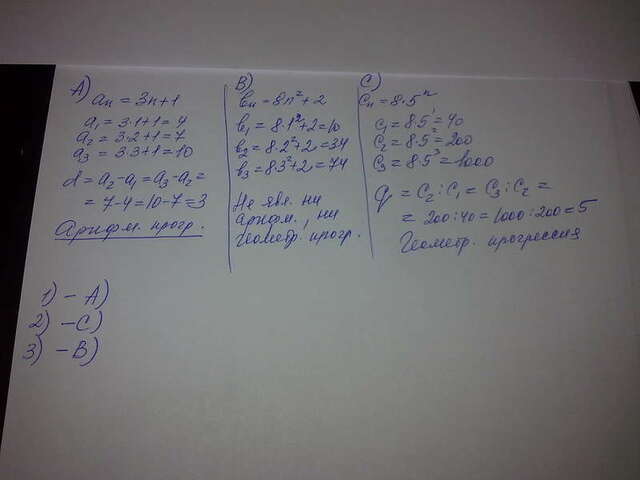 А)
aₙ = 3n+1
a₁ = 3·1+1=4
a₂ = 3·2+1=7
a₃ = 3·3+1=10
d = a₂-a₁=a₃-a₂=
= 7-4=10-7=3
Арифм. прогр.
В)
bₙ = 8n²+2
b₁ = 8·1²+2=10
b₂ = 8·2²+2=34
b₃ = 8·3²+2=74
Не явл. ни
арифм., ни
геометр. прогр.
С)
Cₙ = 8·5ⁿ
C₁ = 8·5¹=40
C₂ = 8·5²=200
C₃ = 8·5³=1000
q = C₂:C₁ = C₃:C₂ =
= 200:40=1000:200=5
Геометр. прогрессия
1) – А)
2) – С)
3) – В)